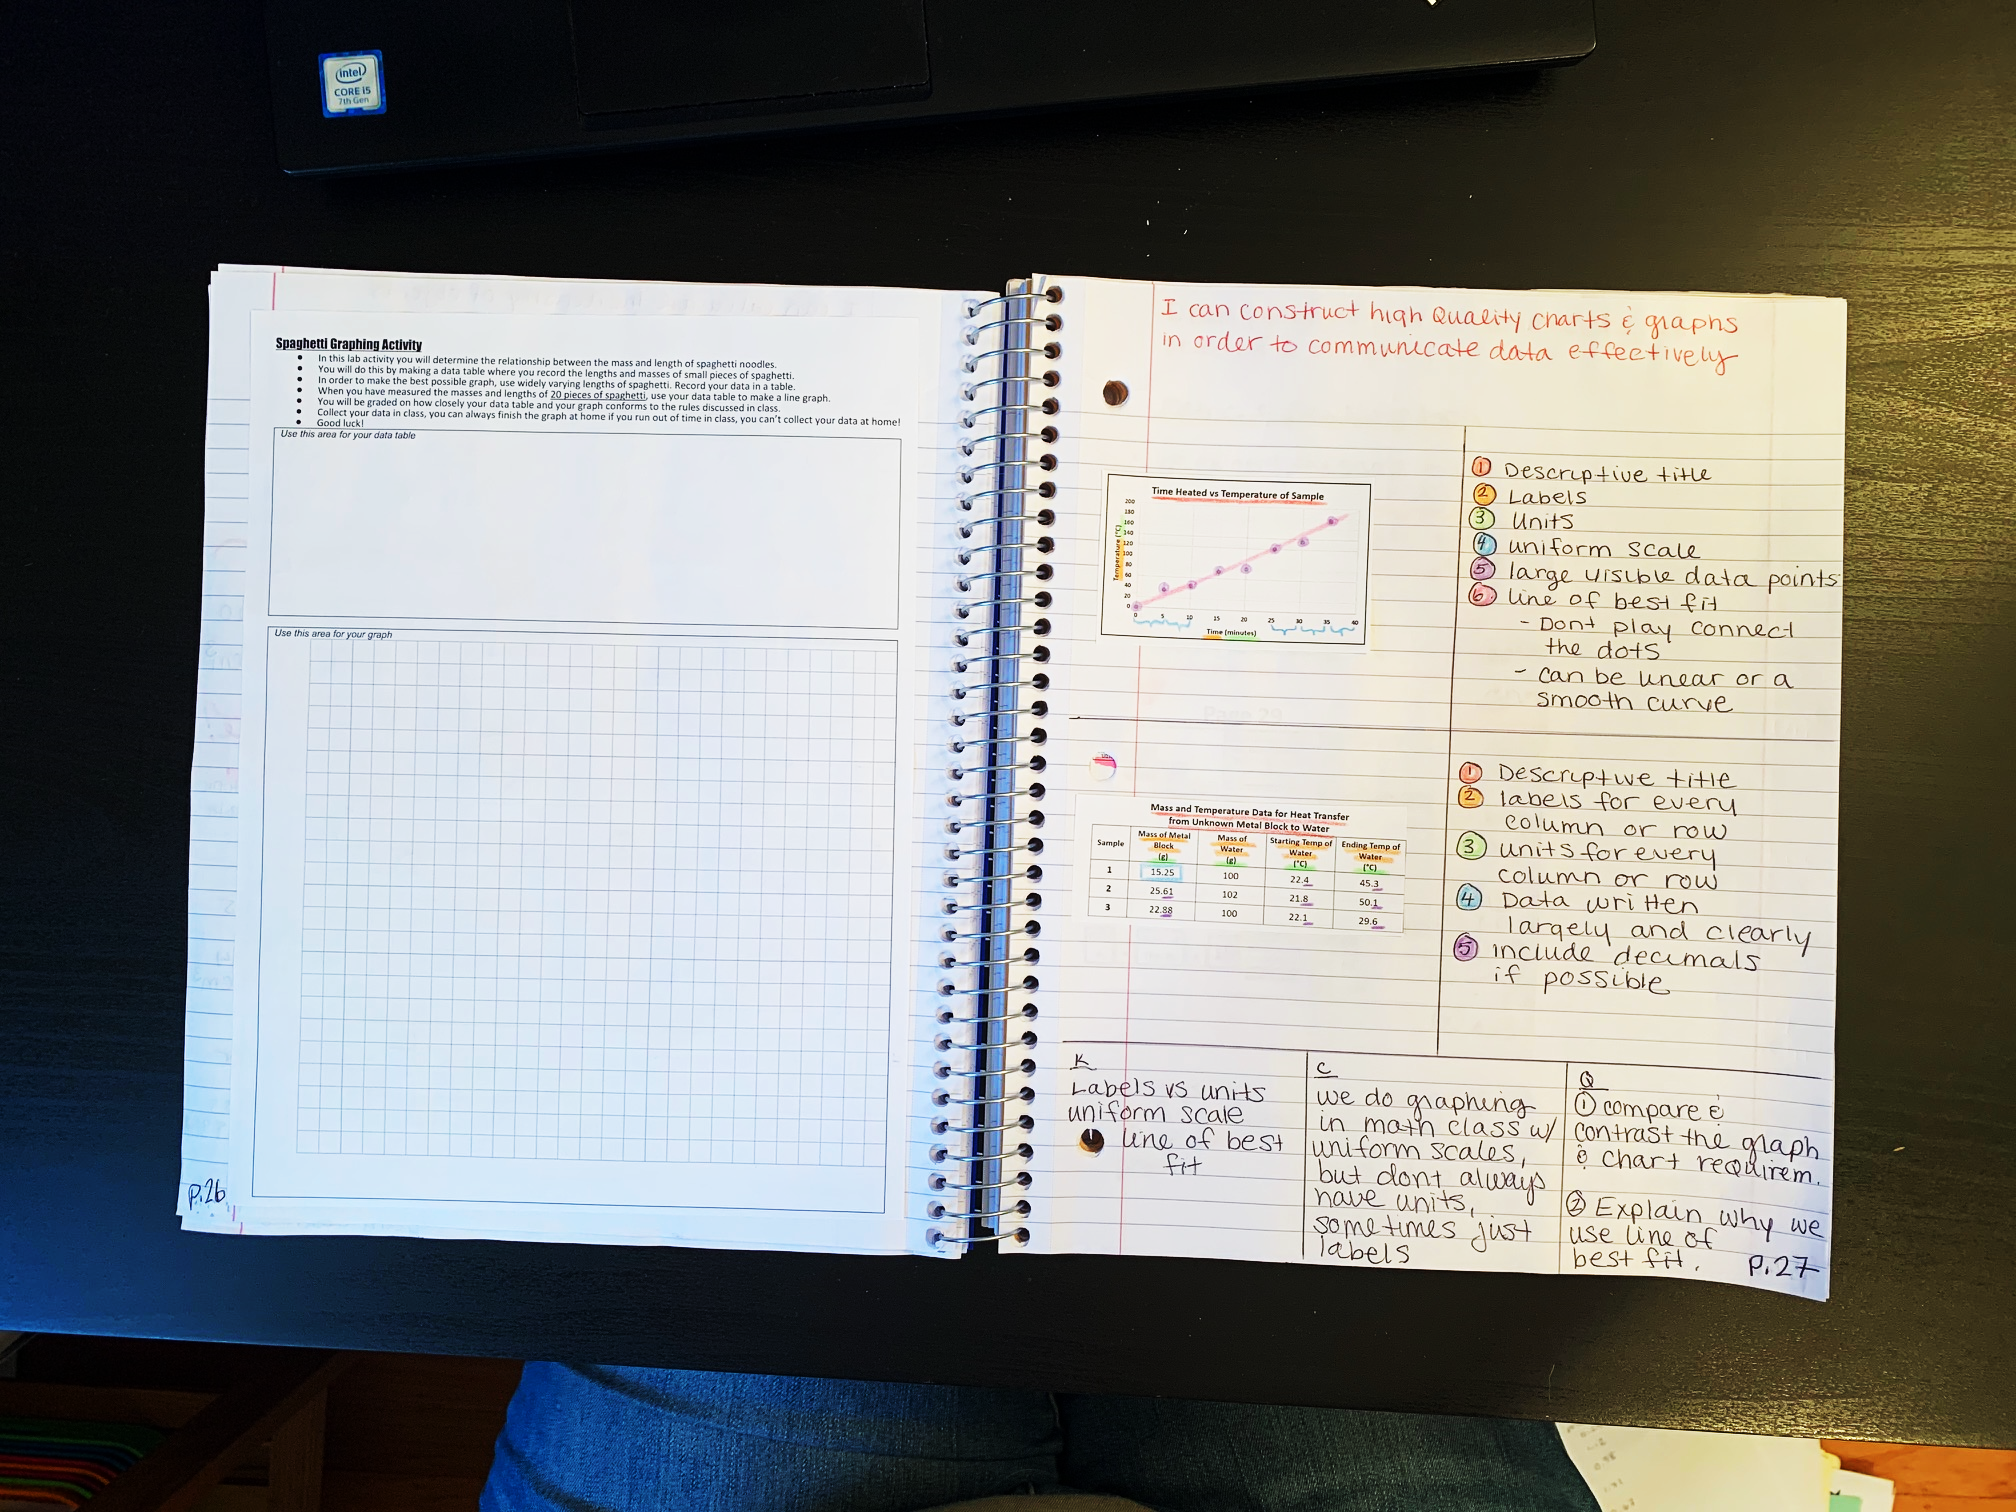 intel
CORE i5
7th Gen
Spaghetti Graphing Activity
• In this lab activity you will determine the relationship between the mass and length of spaghetti noodles.
• You will do this by making a data table where you record the lengths and masses of small pieces of spaghetti.
• In order to make the best possible graph, use widely varying lengths of spaghetti. Record your data in a table.
• When you have measured the masses and lengths of 20 pieces of spaghetti, use your data table to make a line graph.
• You will be graded on how closely your data table and your graph conforms to the rules discussed in class.
• Collect your data in class, you can always finish the graph at home if you run out of time in class, you can't collect your data at home!
• Good luck!
Use this area for your data table
Use this area for your graph
P.26
I can construct high Quality charts & graphs
in order to communicate data effectively
Time Heated vs Temperature of Sample
Temperature (°C)
200
180
160
140
120
100
80
60
40
20
0
0 5 10 15 20 25 30 35 40
Time (minutes)
1 Descriptive title
2 Labels
3 Units
4 uniform scale
5 large visible data points
6. line of best fit
- Dont play connect
the dots
- can be linear or a
smooth curve
Mass and Temperature Data for Heat Transfer
from Unknown Metal Block to Water
Sample Mass of Metal Block (g) Mass of Water (g) Starting Temp of Water (°C) Ending Temp of Water (°C)
1 15.25 100 22.4 45.3
2 25.61 102 21.8 50.1
3 22.88 100 22.1 29.6
1 Descriptive title
2 labels for every
column or row
3 units for every
column or row
4 Data written
largely and clearly
5 include decimals
if possible
K
Labels vs units
uniform scale
line of best
fit
C
we do graphing
in math class w/
uniform scales,
but dont always
have units,
sometimes just
labels
Q
1 compare &
contrast the graph
& chart requirem.
2 Explain why we
use line of
best fit.
P.27